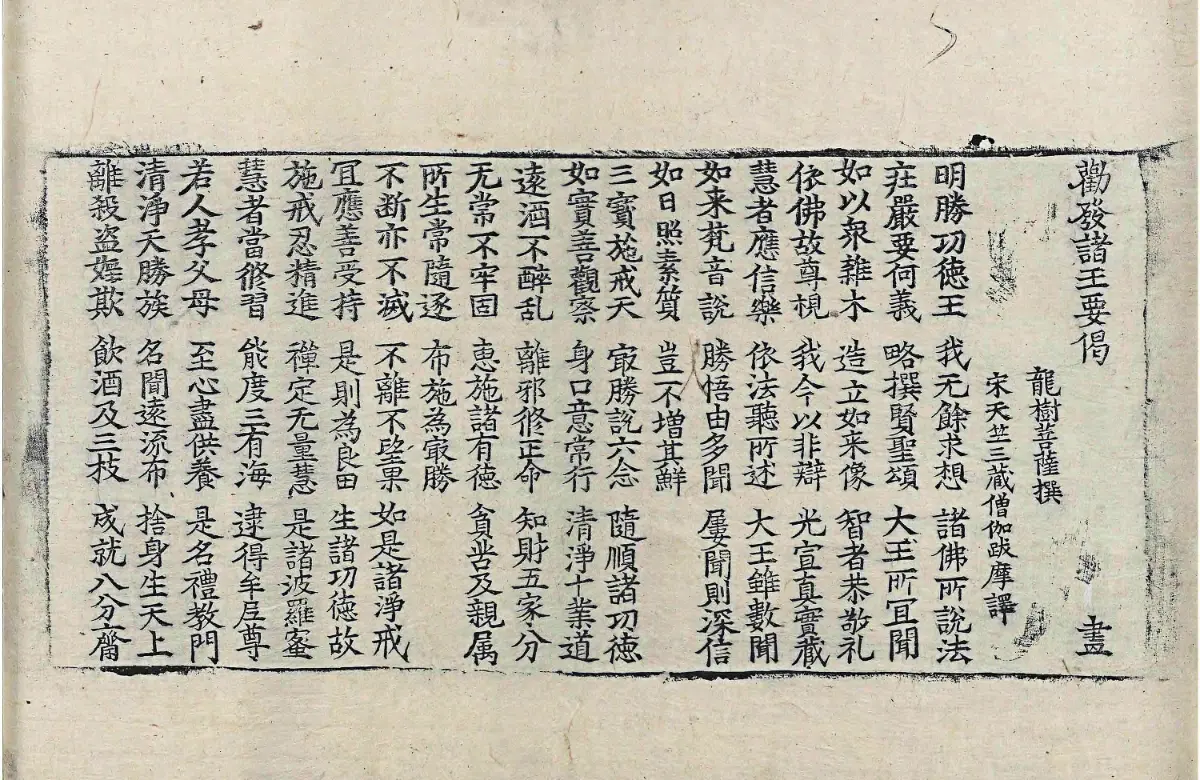 勸發諸王要偈 盡
龍樹菩薩撰
宋天竺三藏僧伽跋摩譯
明勝功徳王 我无餘求想 諸佛所說法
在嚴要何義 略撰賢聖頌 大王所宜聞
如以衆雜木 造立如来像 智者恭敬礼
依佛故尊視 我今以非辯 光宣真實藏
慧者應信樂 依法聽所述 大王雖數聞
如来梵音說 勝悟由多聞 屢聞則深信
如日照素質 豈不增其鮮
三寶施戒天 㝡勝說六念 隨順諸功徳
如實善觀察 身口意常行 清淨十業道
遠酒不醉乱 離邪修正命 知財五家分
无常不牢固 恵施諸有徳 貧苦及親属
所生常隨逐 布施為㝡勝
不断亦不滅 不離不望果 如是諸淨戒
冝應善受持 是則為良田 生諸功徳故
施戒忍精進 禪定无量慧 是諸波羅蜜
慧者當修習 能度三有海 逮得牟尼尊
若人孝父母 至心盡供養 是名禮教門
清淨天勝族 名聞遠流布 捨身生天上
離殺盗婬欺 飲酒及三枝 成就八分齋